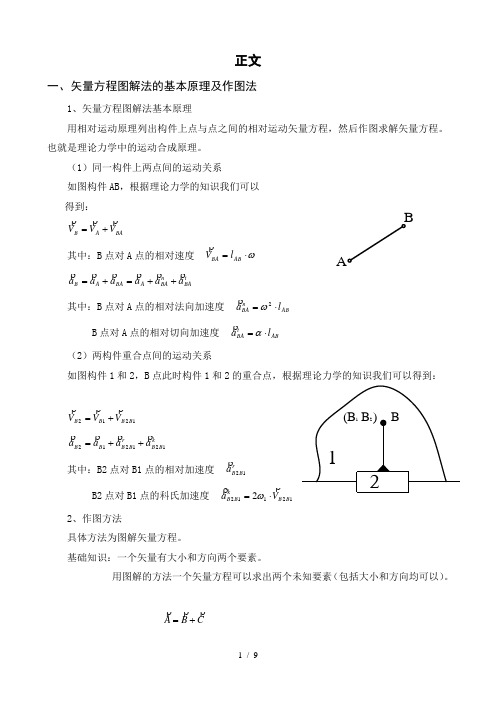 正文
一、矢量方程图解法的基本原理及作图法
1、矢量方程图解法基本原理
用相对运动原理列出构件上点与点之间的相对运动矢量方程，然后作图求解矢量方程。
也就是理论力学中的运动合成原理。
（1）同一构件上两点间的运动关系
如图构件AB，根据理论力学的知识我们可以
得到：
B
V_B = V_A + V_BA
其中：B点对A点的相对速度 V_BA = l_AB · ω
A
a_B = a_A + a_BA = a_A + a^n_BA + a^t_BA
其中：B点对A点的相对法向加速度 a^n_BA = ω² · l_AB
B点对A点的相对切向加速度 a^t_BA = α · l_AB
（2）两构件重合点间的运动关系
如图构件1和2，B点此时构件1和2的重合点，根据理论力学的知识我们可以得到：
V_B2 = V_B1 + V_B2B1
(B₁ B₂) B
a_B2 = a_B1 + a^r_B2B1 + a^k_B2B1
1
其中：B2点对B1点的相对加速度 a^r_B2B1
2
B2点对B1点的科氏加速度 a^k_B2B1 = 2ω₁ · V_B2B1
2、作图方法
具体方法为图解矢量方程。
基础知识：一个矢量有大小和方向两个要素。
用图解的方法一个矢量方程可以求出两个未知要素（包括大小和方向均可以）。
A = B + C
1 / 9